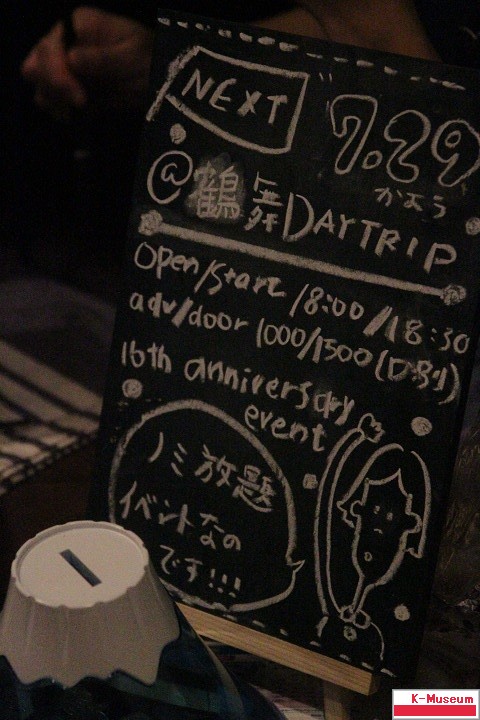 NEXT
7.29
かよう
@鶴舞DAYTRIP
open/start 18:00/18:30
adv/door 1000/1500(D別)
16th anniversary
event
ノミ放題
イベントなの
です!!!
K-Museum